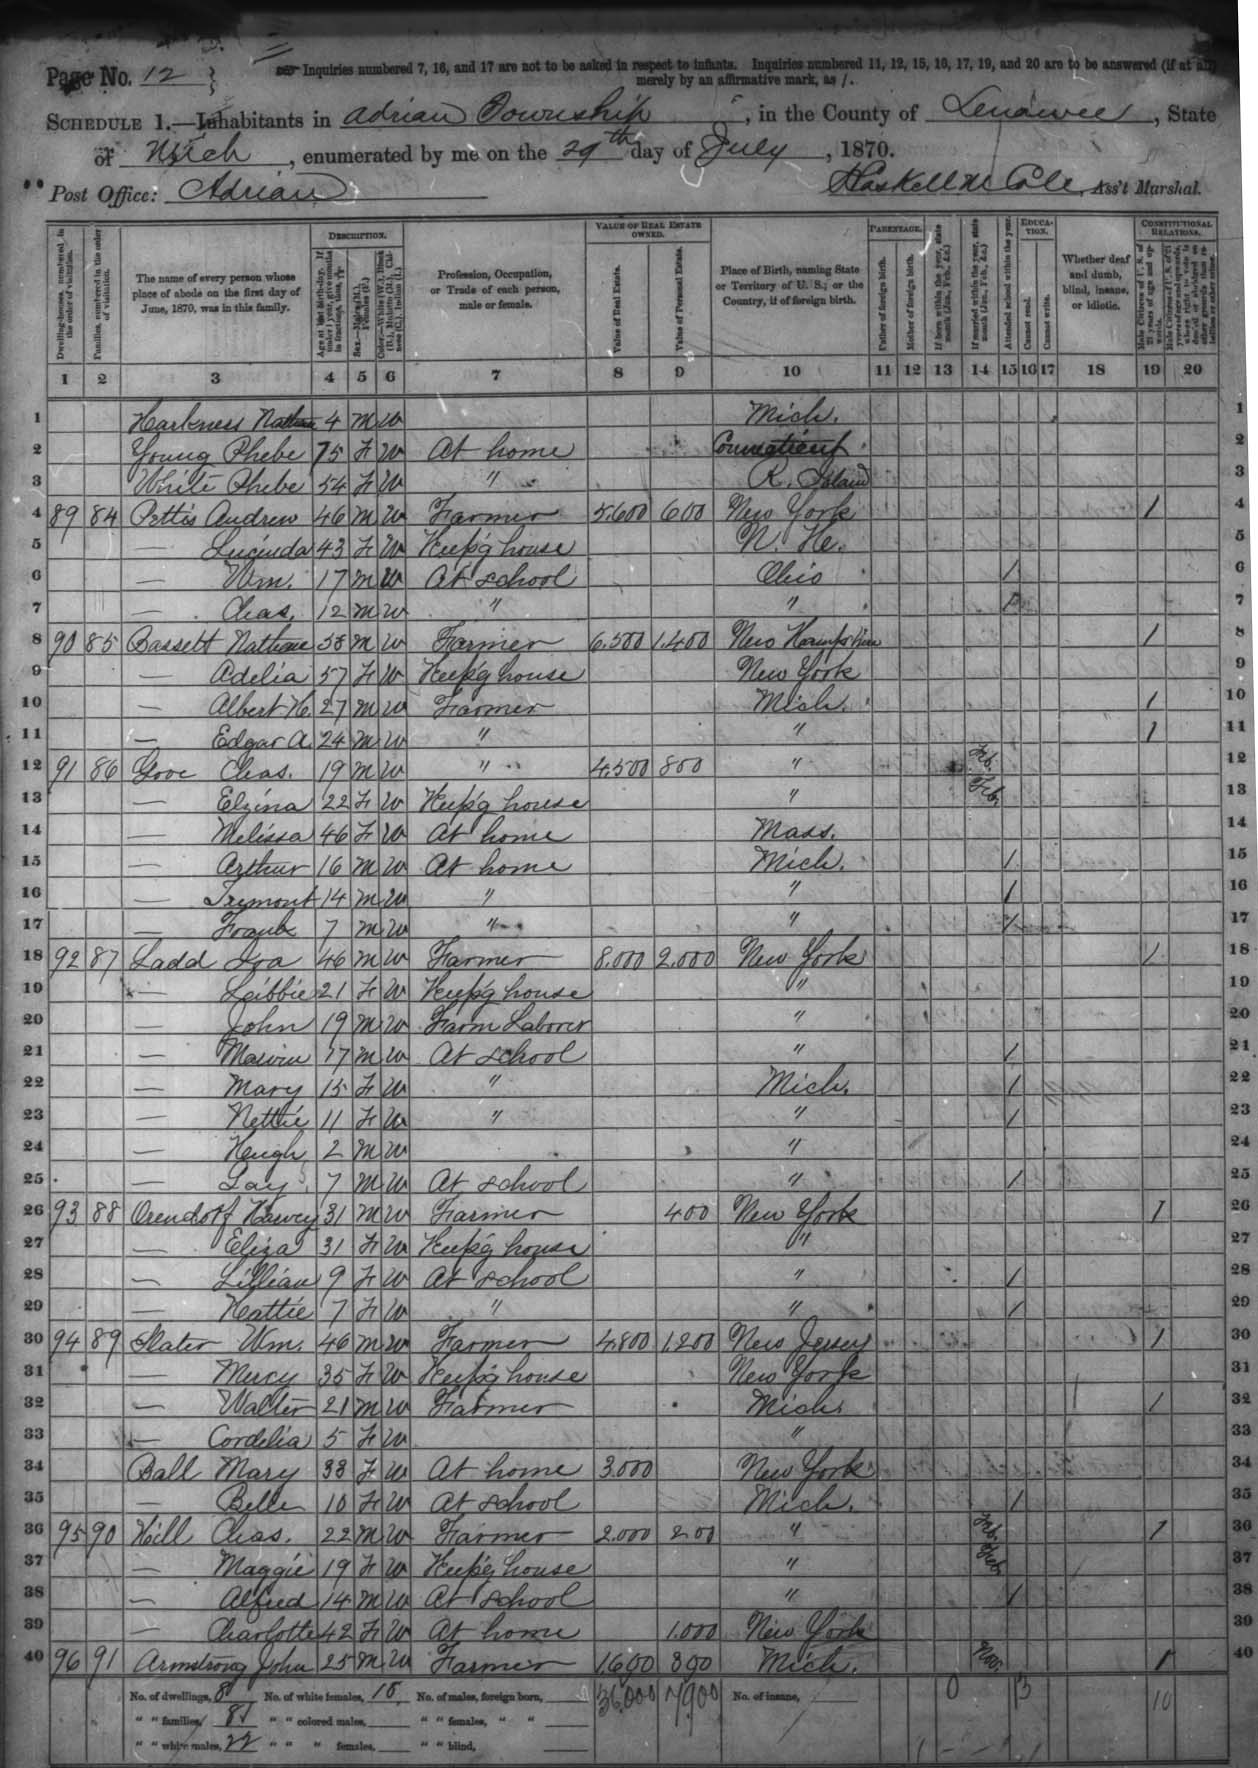 Page No. 12
Inquiries numbered 7, 16, and 17 are not to be asked in respect to infants. Inquiries numbered 11, 12, 15, 16, 17, 19, and 20 are to be answered (if at all)
merely by an affirmative mark, as /.
SCHEDULE 1.—Inhabitants in Adrian Township, in the County of Lenawee, State
of Mich, enumerated by me on the 29th day of July, 1870.
Post Office: Adrian Haskell M Cole, Ass't Marshal.
Dwelling-houses, numbered in the order of visitation.
Families, numbered in the order of visitation.
The name of every person whose place of abode on the first day of June, 1870, was in this family.
DESCRIPTION.
Age at last birth-day. If under 1 year, give months in fractions, thus, 3/12
Sex.—Males (M.), Females (F.)
Color.—White (W.), Black (B.), Mulatto (M.), Chinese (C.), Indian (I.)
Profession, Occupation, or Trade of each person, male or female.
VALUE OF REAL ESTATE OWNED.
Value of Real Estate.
Value of Personal Estate.
Place of Birth, naming State or Territory of U. S.; or the Country, if of foreign birth.
PARENTAGE.
Father of foreign birth.
Mother of foreign birth.
If born within the year, state month (Jan., Feb., &c.)
If married within the year, state month (Jan., Feb., &c.)
Attended school within the year.
EDUCATION.
Cannot read.
Cannot write.
Whether deaf and dumb, blind, insane, or idiotic.
CONSTITUTIONAL RELATIONS.
Male Citizens of U. S. of 21 years of age and upwards.
1 2 3 4 5 6 7 8 9 10 11 12 13 14 15 16 17 18 19 20
1 Harkness Nathan 4 M W Mich. 1
2 Young Phebe 75 F W At home Connecticut 2
3 White Phebe 54 F W " R. Island 3
4 89 84 Pettis Andrew 46 M W Farmer 5.600 600 New York 1 4
5 — Lucinda 43 F W Keep'g house N. He. 5
6 — Wm. 17 M W At school Ohio / 6
7 — Chas. 12 M W " " / 7
8 90 85 Bassett Nathan 58 M W Farmer 6.500 1.400 New Hampshire 1 8
9 — Adelia 57 F W Keep'g house New York 9
10 — Albert H. 27 M W Farmer Mich. 1 10
11 — Edgar A. 24 M W " " 1 11
12 91 86 Gove Chas. 19 M W " 4.500 800 " Feb. 12
13 — Elzina 22 F W Keep'g house " Feb. 13
14 — Melissa 46 F W At home Mass. 14
15 — Arthur 16 M W At home Mich. / 15
16 — Trymont 14 M W " " / 16
17 — Frank 7 M W " " / 17
18 92 87 Ladd Ira 46 M W Farmer 8.000 2.000 New York 1 18
19 — Libbie 21 F W Keep'g house " 19
20 — John 19 M W Farm Laborer " 20
21 — Marvin 17 M W At school " / 21
22 — Mary 15 F W " Mich. / 22
23 — Nettie 11 F W " " / 23
24 — Hugh 2 M W " 24
25 — Lay 7 M W At school " / 25
26 93 88 Orendorff Harvey 31 M W Farmer 400 New York 1 26
27 — Eliza 31 F W Keep'g house " 27
28 — Lillian 9 F W At school " / 28
29 — Hattie 7 F W " " / 29
30 94 89 Slater Wm. 46 M W Farmer 4.800 1.200 New Jersey 1 30
31 — Mercy 35 F W Keep'g house New York 31
32 — Walter 21 M W Farmer Mich. 1 32
33 — Cordelia 5 F W " 33
34 Ball Mary 38 F W At home 3.000 New York 34
35 — Belle 10 F W At school Mich. / 35
36 95 90 Hill Chas. 22 M W Farmer 2.000 200 " Feb. 1 36
37 — Maggie 19 F W Keep'g house " Feb. 37
38 — Alfred 14 M W At school " / 38
39 — Charlotte 42 F W At home 1.000 New York 39
40 96 91 Armstrong John 25 M W Farmer 1.600 800 Mich. Nov. 1 40
No. of dwellings, 8 No. of white females, 18 No. of males, foreign born, 36.000 7.900 No. of insane, 0 13 10
" " families, 8 " " colored males, " " females, " "
" " white males, 22 " " " females, " " blind,